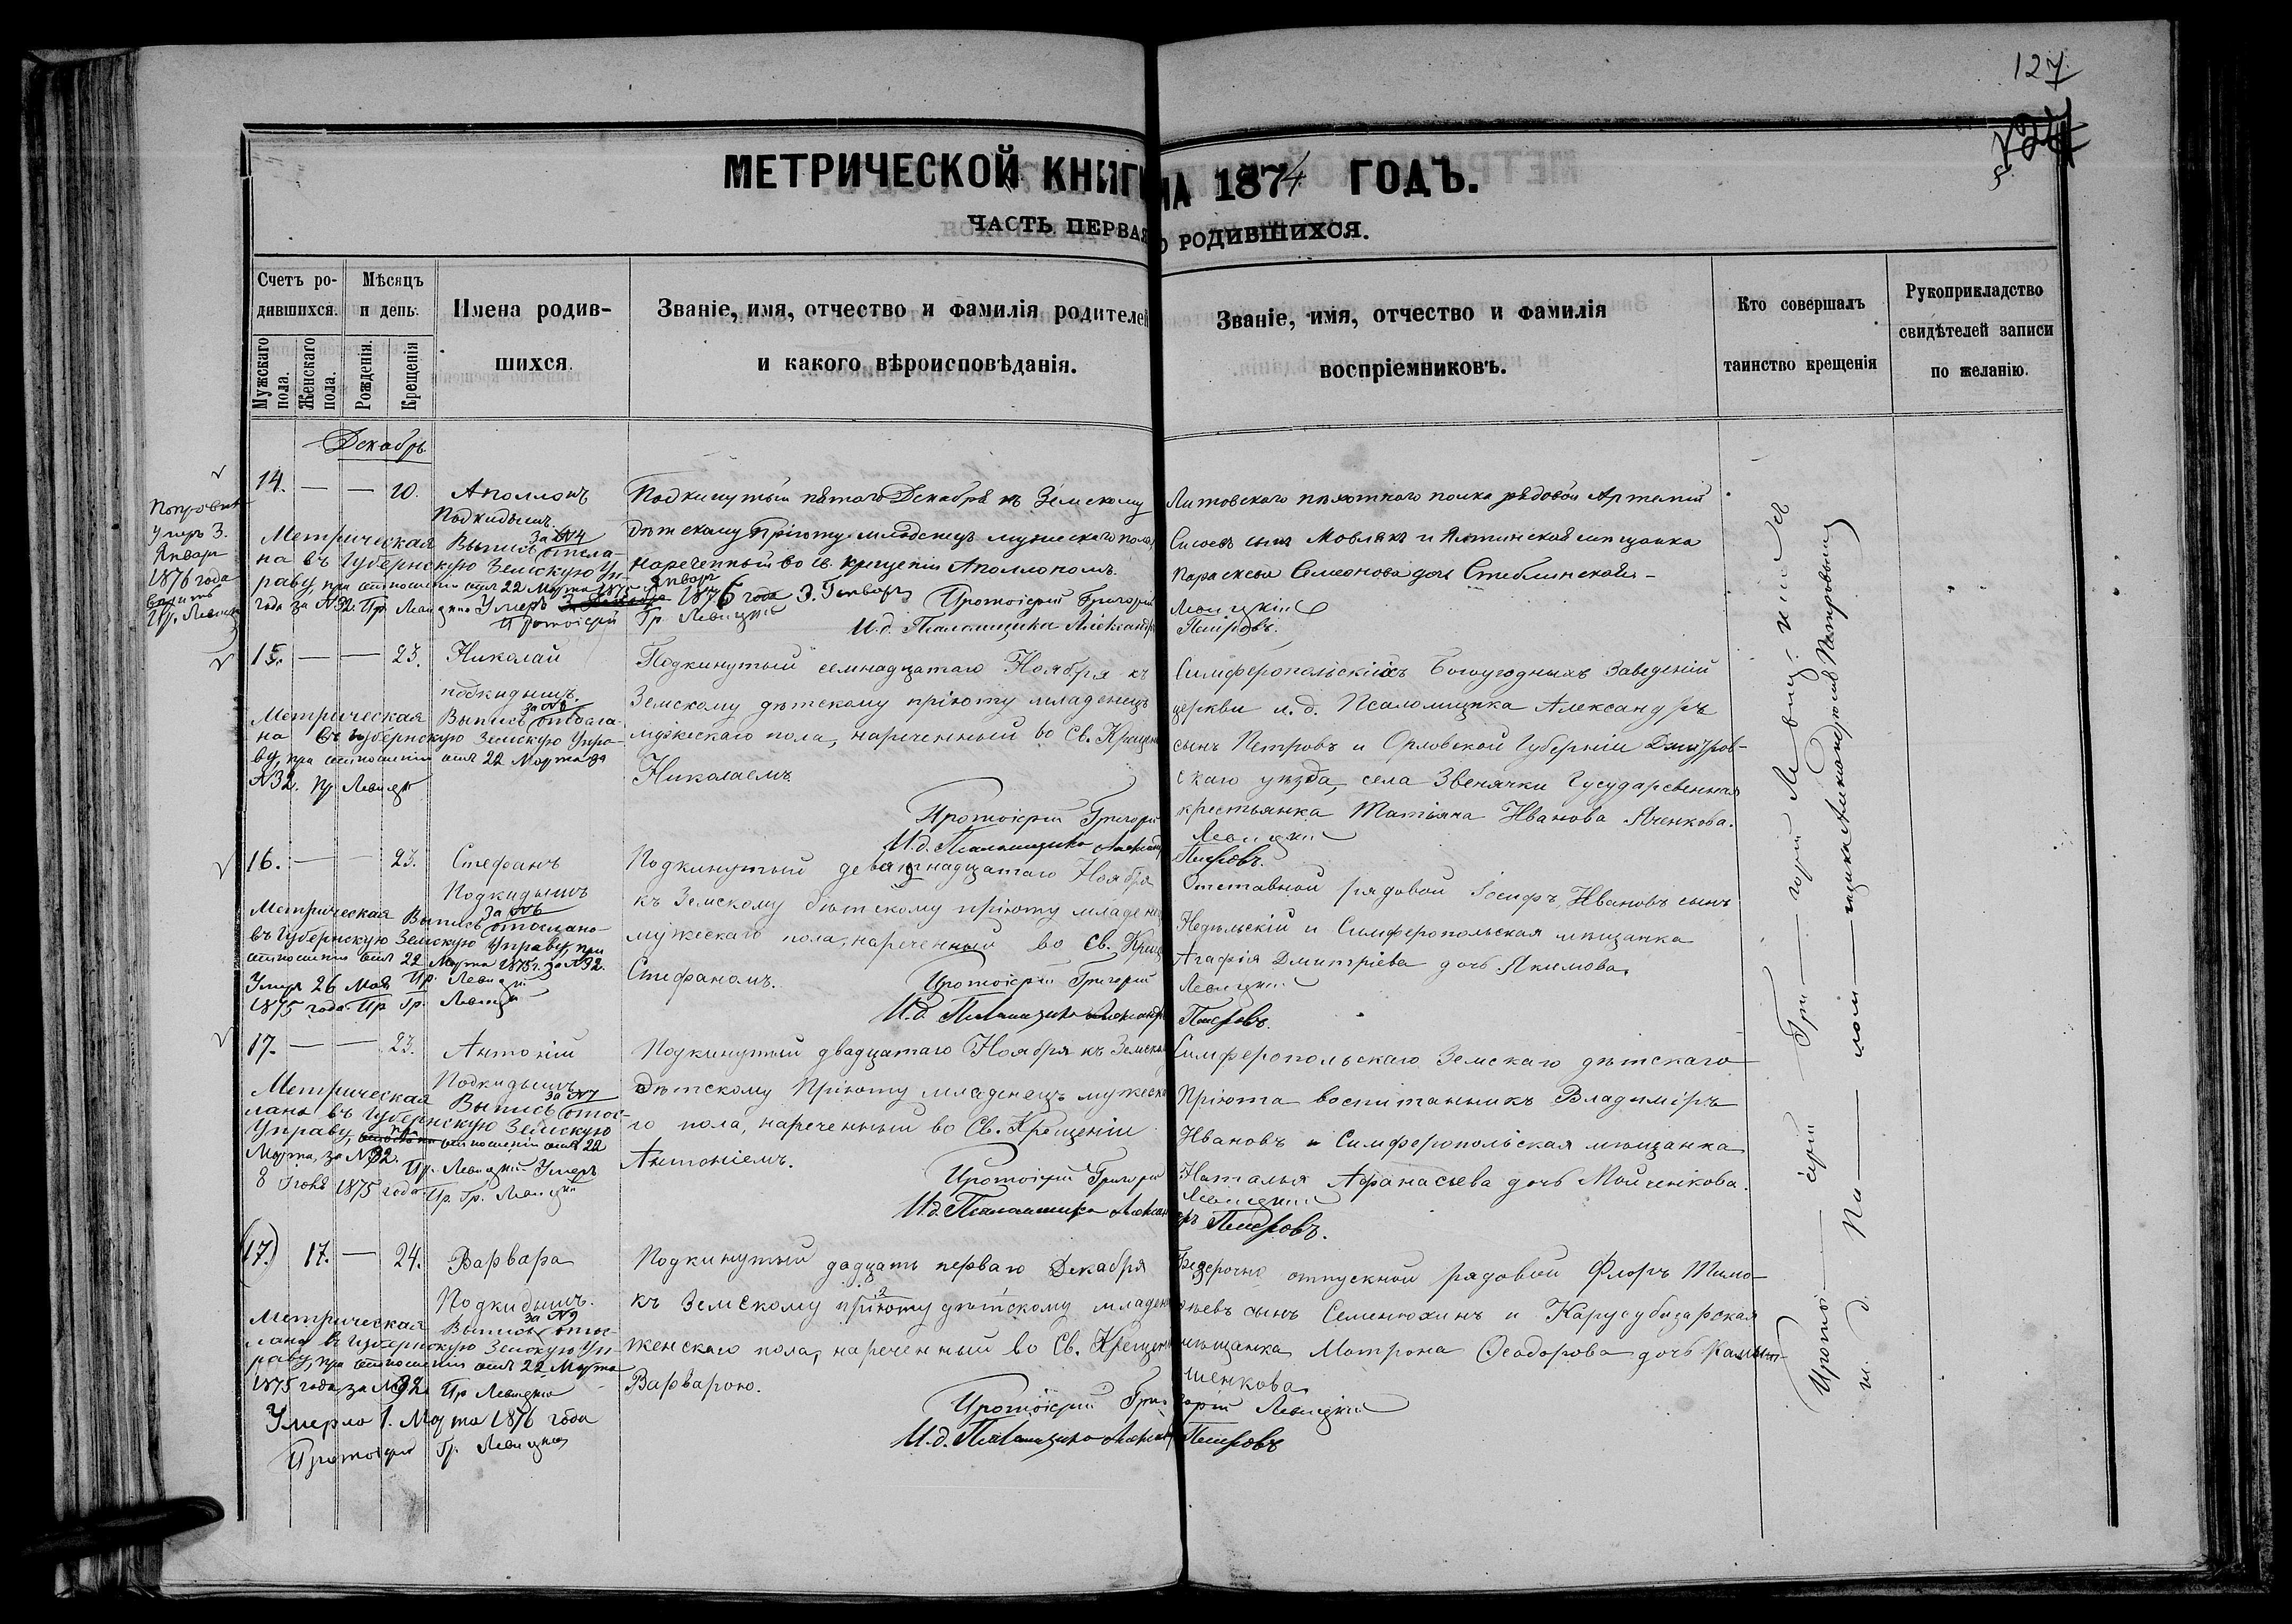 127
МЕТРИЧЕСКОЙ КНИГИ НА 1874 ГОДЪ.
ЧАСТЬ ПЕРВАЯ О РОДИВШИХСЯ.
Счетъ родившихся.
Мужскаго пола.
Женскаго пола.
Мѣсяцъ и день.
Рожденія.
Крещенія
Имена родив-
шихся.
Званіе, имя, отчество и фамилія родителей
и какого вѣроисповѣданія.
Званіе, имя, отчество и фамилія
воспріемниковъ.
Кто совершалъ
таинство крещенія
Рукоприкладство
свидѣтелей записи
по желанію.
Декабрь
14. — — 10. Аполлонъ
Подкидышъ.
Метрическая Выпись отосла-
за №4
на въ Губернскую Земскую Уп-
раву, при отношеніи отъ 22 Марта 1875
года за №32. Пр. Левицкій Умеръ 1876 года 3. Января
Январь
Протоіерей Гр. Левицкій
Умеръ 3.
Января
1876 года
Пр. Левицк
Подкинутый пятаго Декабря къ Земскому
дѣтскому Пріюту младенецъ мужескаго пола,
нареченный во св. крещеніи Аполлономъ.
Протоіерей Григорій Левицкій
И.д. Псаломщика Александръ Петровъ.
Литовскаго пѣхотнаго полка рядовой Артемій
Сисоевъ сынъ Мовлякъ и Ялтинская мѣщанка
Параскева Семеонова дочь Стеблинская
15. — — 23. Николай
подкидышъ.
Метрическая Выпись отосла-
на въ Губернскую Земскую Упра-
ву, при отношеніи отъ 22 Марта за
№32. Пр. Левицкій
Подкинутый семнадцатаго Ноября къ
Земскому дѣтскому пріюту младенецъ
мужескаго пола, нареченный во Св. Крещен
Николаемъ
Протоіерей Григорій Левицкій
И.д. Псаломщика Александръ Петровъ.
Симферопольскихъ Богоугодныхъ Заведеній
церкви и. д. Псаломщика Александръ
сынъ Петровъ и Орловской Губерніи Дмитров-
скаго уѣзда, села Звенячки Государственная
крестьянка Татіяна Иванова Яченкова.
16. — — 23. Стефанъ
Подкидышъ
Метрическая Выпись отослано
въ Губернскую Земскую Управу, при
отношеніи отъ 22 Марта 1875 г. за №32.
Пр. Левицкій
Умеръ 26 Мая
1875 года. Пр. Гр. Левицкій
Подкинутый девятнадцатаго Ноября
къ Земскому дѣтскому пріюту младене
мужескаго пола, нареченный во Св. Крещ
Стефаномъ.
Протоіерей Григорій Левицкій
И.д. Псаломщика Александръ Петровъ.
Отставной рядовой Іосифъ Ивановъ сынъ
Недѣльскій и Симферопольская мѣщанка
Агафія Дмитріева дочь Якимова.
17. — — 23. Антоній
Подкидышъ
за №7
Метрическая Выпись отос-
лана въ Губернскую Земскую
Управу, при отношеніи отъ 22
Марта, за №32. Пр. Левицкій Умеръ
8 Іюня 1875 года. Пр. Гр. Левицкій
Подкинутый двадцатаго Ноября къ Земском
Дѣтскому Пріюту младенецъ мужеска-
го пола, нареченный во Св. Крещеніи
Антоніемъ.
Протоіерей Григорій Левицкій
И.д. Псаломщика Александръ Петровъ.
Симферопольскаго Земскаго дѣтскаго
Пріюта воспитанникъ Владиміръ
Ивановъ и Симферопольская мѣщанка
Наталья Афанасьева дочь Мойченкова.
(17.) 17. — 24. Варвара
Подкидышъ.
за №9
Метрическая Выпись отос-
лана въ Губернскую Земскую Уп-
раву, при отношеніи отъ 22 Марта
1875 года, за №32. Пр Левицкій
Умерла 1. Марта 1876 года
Протоіерей Гр. Левицкій
Подкинутый дадцать перваго Декабря
къ Земскому пріюту дѣтскому младен
женскаго пола, нареченный во Св. Крещени
Варварою.
Протоіерей Григорій Левицкій
И.д. Псаломщика Александръ Петровъ
Безсрочно отпускной рядовой Флоръ Тимо-
ѳеевъ сынъ Семенюхинъ и Карусубазарская
мѣщанка Матрона Ѳеодорова дочь
шенкова
Протоіерей Григорій Левицкій
и. д. Псаломщика Александръ Петровъ